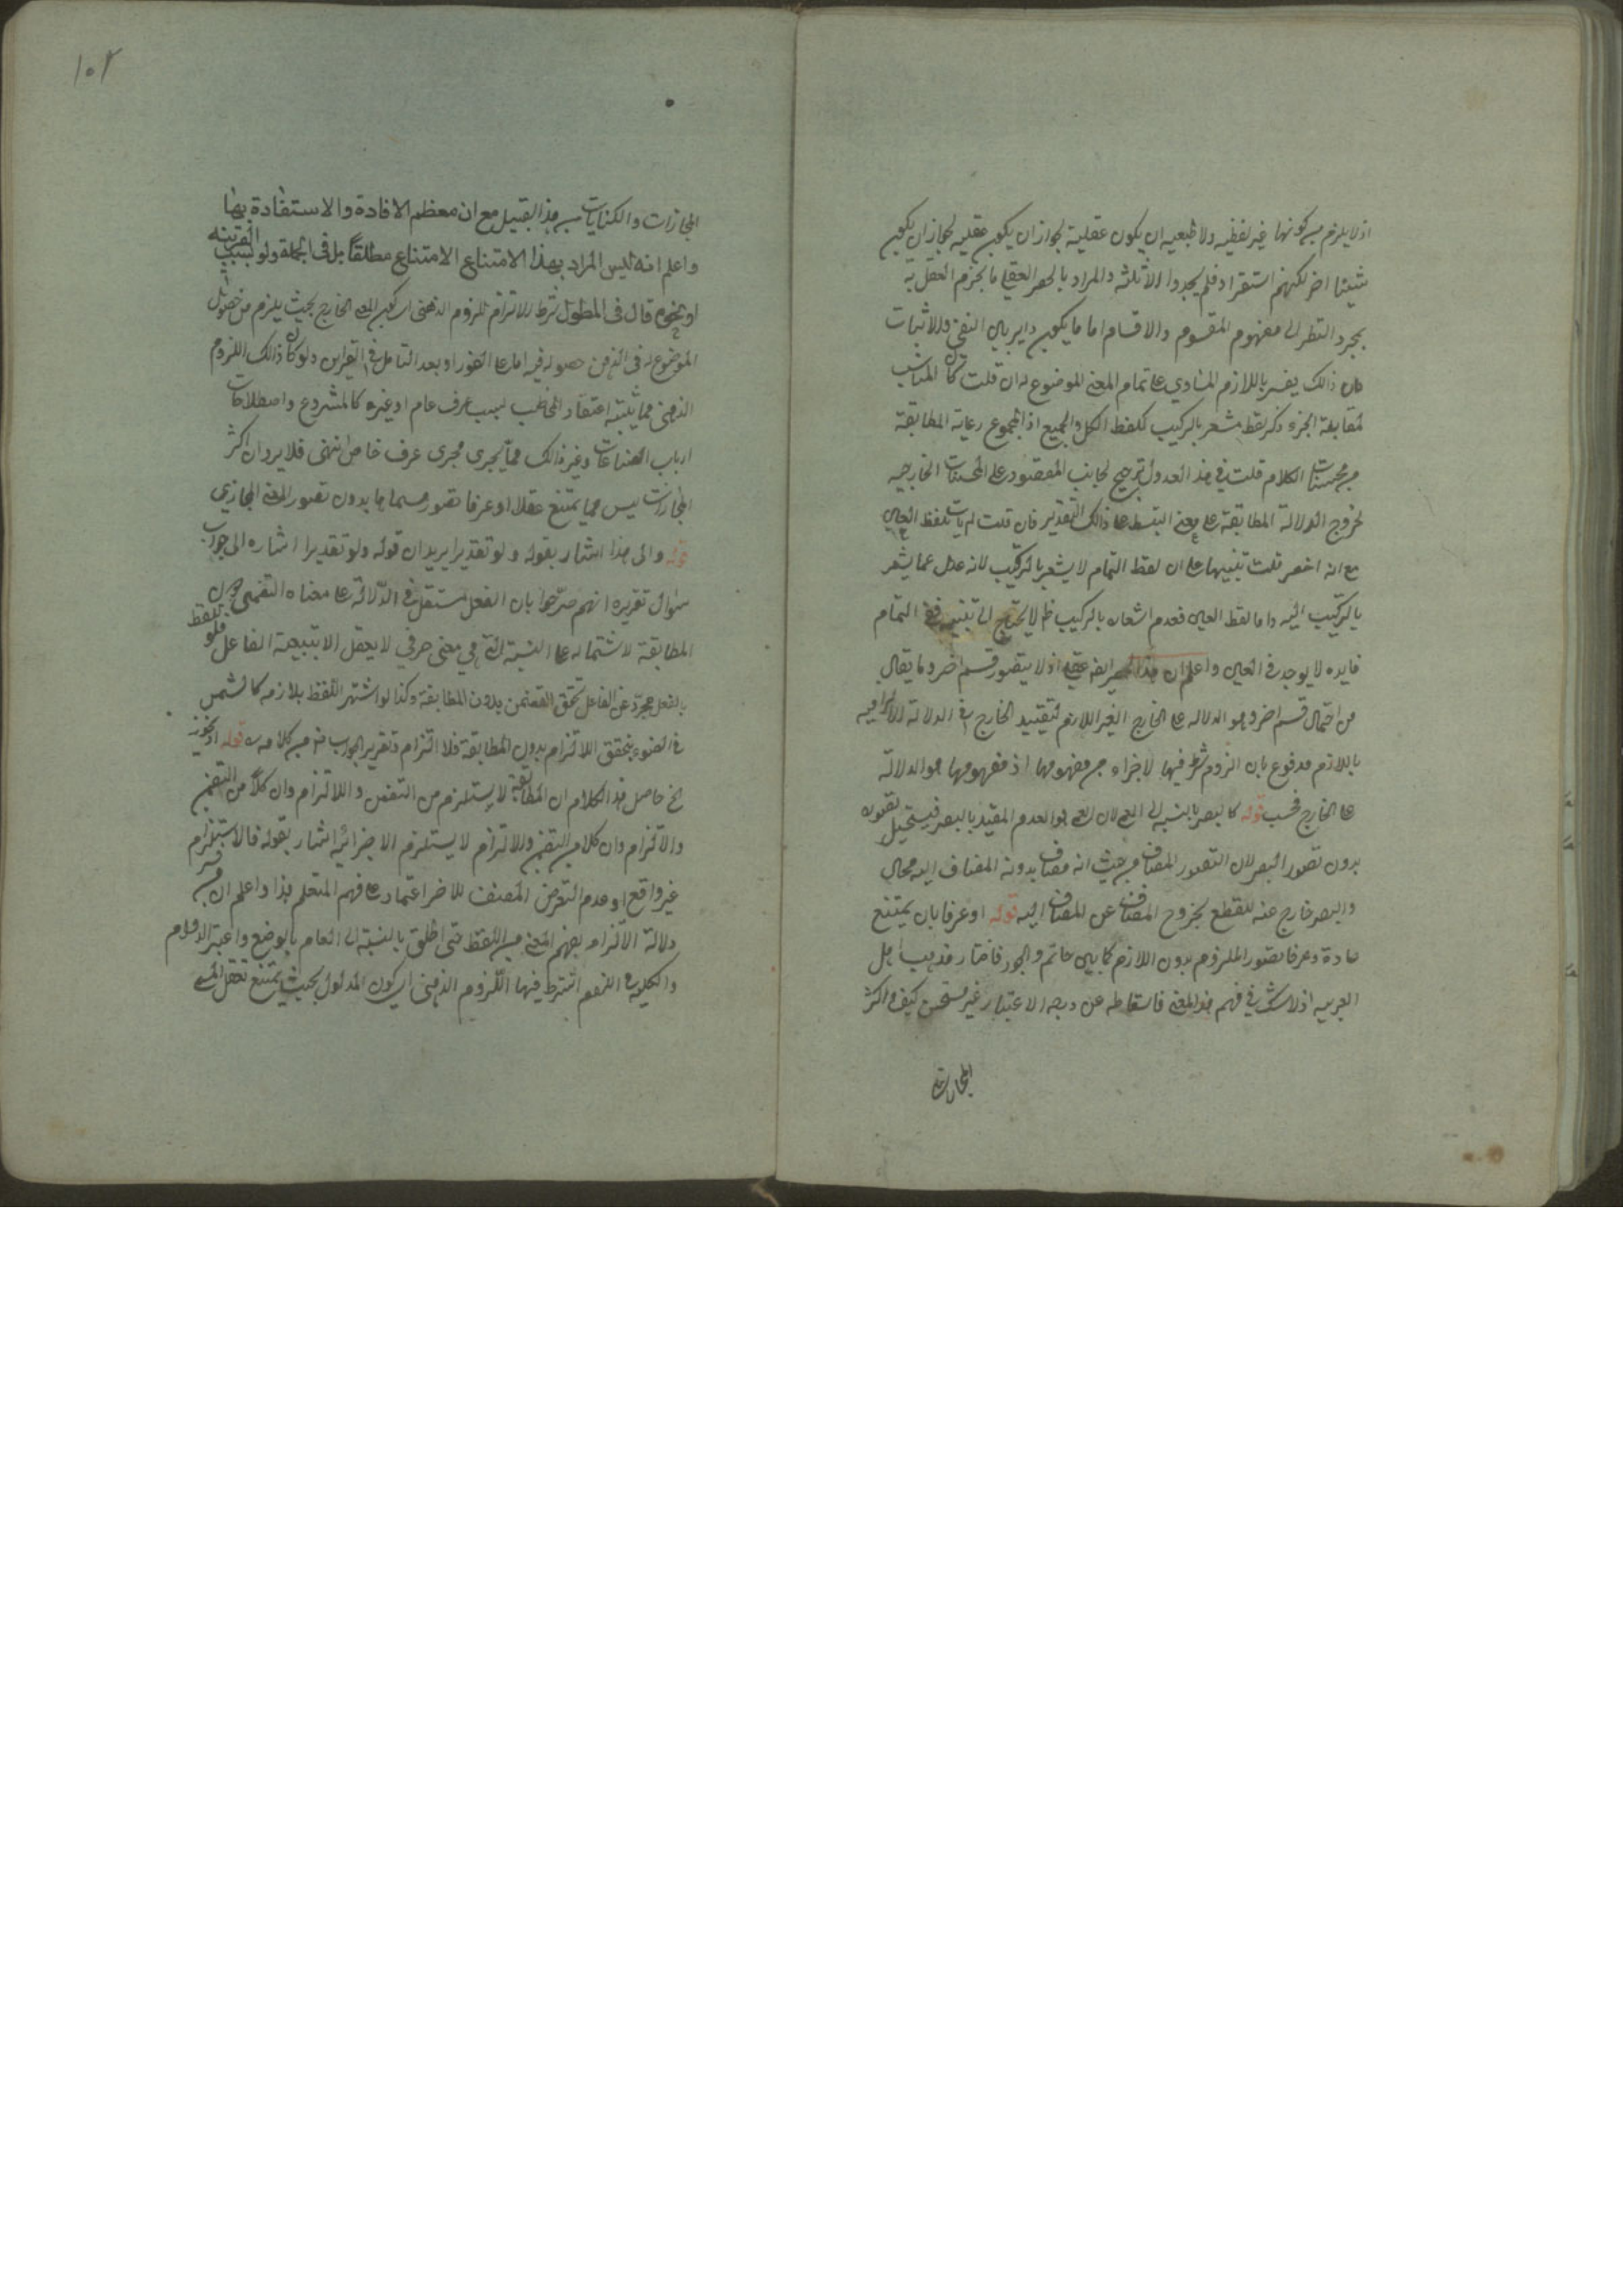 اذ لا يلزم من كونها غير لفظيه ولا طبعيه ان يكون عقلية لجواز ان يكون عقليه لجواز ان يكون
شيئا اخر لكنهم استقراء فلم يجدوا الا ثلثه والمراد بالحصر العقلي ما يجزم العقل به
بمجرد النظر الى مفهوم المقسوم والاقسام اما ما يكون داير بين النفى والاثبات
ذالك يفسر باللازم المساوي على تمام المعنى الموضوع له ان قلت كان المناسب
لمقابلة الجزء ذكر لفظ مشعر بالتركيب كلفظ الكل والجميع او المجموع رعاية المطابقة
من محسنات الكلام قلت في هذا العدول ترجيح لجانب المقصود على المحسنات الخارجيه
لخروج الدلالة المطابقة على معنى البسط على ذالك التقدير فان قلت لم يات بلفظ العين
مع انه اخصر قلت تنبيها على ان لفظ التمام لا يشعر بالتركيب لانه عدل عما يشعر
بالتركيب اليه واما لفظ العين فعدم اشعاره بالتركيب ظ لا يحتاج الى تنبيه ففى التمام
فايده لا يوجد فى العين واعلم ان هذا الحصر ايضا عقلي اذ لا يتصور قسم اخر وما يقال
من احتمال قسم اخر وهو الدلاله على الخارج الغير اللازم لتقييد الخارج فى الدلالة الالتزاميه
باللازم مدفوع بان اللزوم شرط فيها لا جزء من مفهومها اذ مفهومها هو الدلالة
على الخارج فحسب قوله كالبصر بالنسبه الى العمى لان العمى هو العدم المقيد بالبصر فيستحيل تصوره
بدون تصور البصر لان التصور المضاف من حيث انه مضاف بدونه المضاف اليه محال
والبصر خارج عنه للقطع بخروج المضاف عن المضاف اليه قوله او عرفا بان يمتنع
عادة وعرفا تصور الملزوم بدون اللازم كما بين حاتم والجود فاختار مذهب اهل
العربيه اذ لا شك في فهم هذا المعنى فاسقاطه عن درجه الاعتبار غير مستحسن كيف واكثر
المجازات
١٠٢
المجازات والكنايات من هذا القبيل مع ان معظم الافادة والاستفادة بها
واعلم انه ليس المراد بهذا الامتناع الامتناع مطلقا بل فى الجملة ولو بسبب القرينه
او نحوه قال فى المطول شرط الالتزام اللزوم الذهنى اى كون المعنى الخارج بحيث يلزم من حصول
الموضوع له فى الذهن حصوله فيه اما على الفور او بعد التامل فى القراين ولو كان ذالك اللزوم
الذهنى مما يثبته اعتقاد المخاطب بسبب عرف عام او غيره كالمشروع واصطلاحات
ارباب الصناعات وغير ذالك مما يجرى مجرى عرف خاص انتهى فلا يرد ان اكثر
المجازات ليس مما يمتنع عقلا او عرفا تصور مسماها بدون تصور المعنى المجازي
قوله والى هذا اشار بقوله ولو تقديرا يريد ان قوله ولو تقديرا اشاره الى جواب
سوال تقريره انهم صرّحوا بان الفعل مستقل فى الدّلالة على معناه التضمنى دون
المطابقة لاشتماله على النسبة التى هي معنى حرفي لا يعقل الا بتبيعة الفاعل فلو تلفظ
بالفعل مجردّ عن الفاعل تحقق التضمن بدون المطابقة وكذا لو اشتهر اللّفظ بلازمه كالشمس
فى الضوء يتحقق الالتزام بدون المطابقة فلا التزام وتقرير الجواب فهم من كلامه ره قوله اذ يجوز
الخ حاصل هذا الكلام ان المطابقة لا يستلزم من التضمن والالتزام وان كلاً من التضمن
والالتزام وان كلا من التضمن والالتزام لا يستلزم الاخر انه اشار بقوله فالاستلزام
غير واقع او عدم التعرض المصنف للاخر اعتمادا على فهم المتعلم هذا واعلم ان من فسر
دلالة الالتزام بفهم المعنى من اللفظ متى اطلق بالنسبة الى العام بالوضع واعتبر الدوام
والكليه فى الفهم اشترط فيها اللّزوم الذهنى اى كون المدلول بحيث يمتنع تعقل المسمى